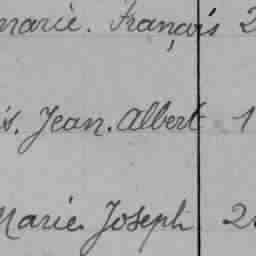 marie. François 2
s. Jean. Albert 1
Marie Joseph 2